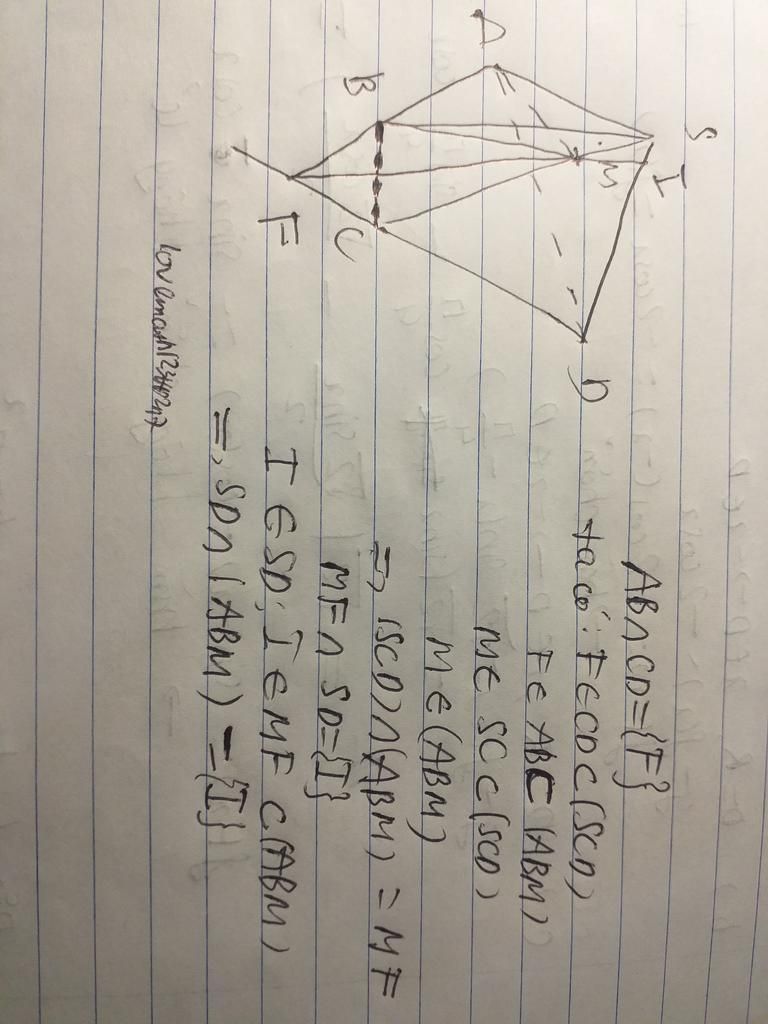 S
I
M
A
B
C
D
F
AB∩CD={F}
ta có: F∈CD⊂(SCD)
F∈AB⊂(ABM)
M∈SC⊂(SCD)
M∈(ABM)
=> (SCD)∩(ABM)=MF
MF∩SD={I}
I∈SD; I∈MF⊂(ABM)
=> SD∩(ABM)={I}